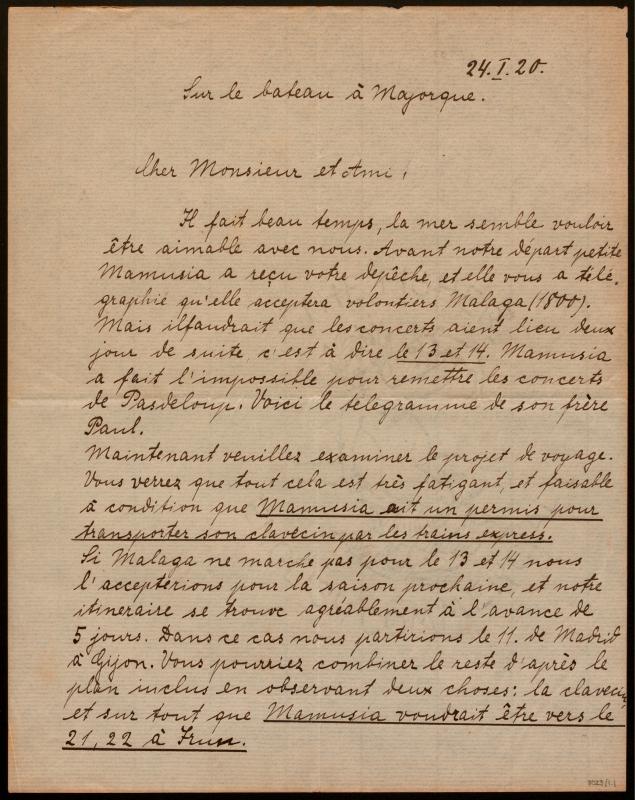 24.I.20.
Sur le bateau à Majorque.
Cher Monsieur et Ami,
Il fait beau temps, la mer semble vouloir
être aimable avec nous. Avant notre départ petite
Mamusia a reçu votre depêche, et elle vous a télé-
graphié qu'elle acceptera volontiers Malaga (1500).
Mais ilfaudrait que les concerts aient lieu deux
jour de suite, c'est à dire le 13 et 14. Mamusia
a fait l'impossible pour remettre les concerts
de Pasdeloup. Voici le telegramme de son frère
Paul.
Maintenant veuillez examiner le projet de voyage.
Vous verrez que tout cela est très fatigant, et faisable
à condition que Mamusia ait un permis pour
transporter son clavecin par les trains express.
Si Malaga ne marche pas pour le 13 et 14 nous
l'accepterions pour la saison prochaine, et notre
itineraire se trouve agréablement à l'avance de
5 jours. Dans ce cas nous partirions le 11. de Madrid
à Gijon. Vous pourriez combiner le reste d'après le
plan inclus en observant deux choses: la clavecin,
et sur tout que Mamusia voudrait être vers le
21, 22 à Irun.